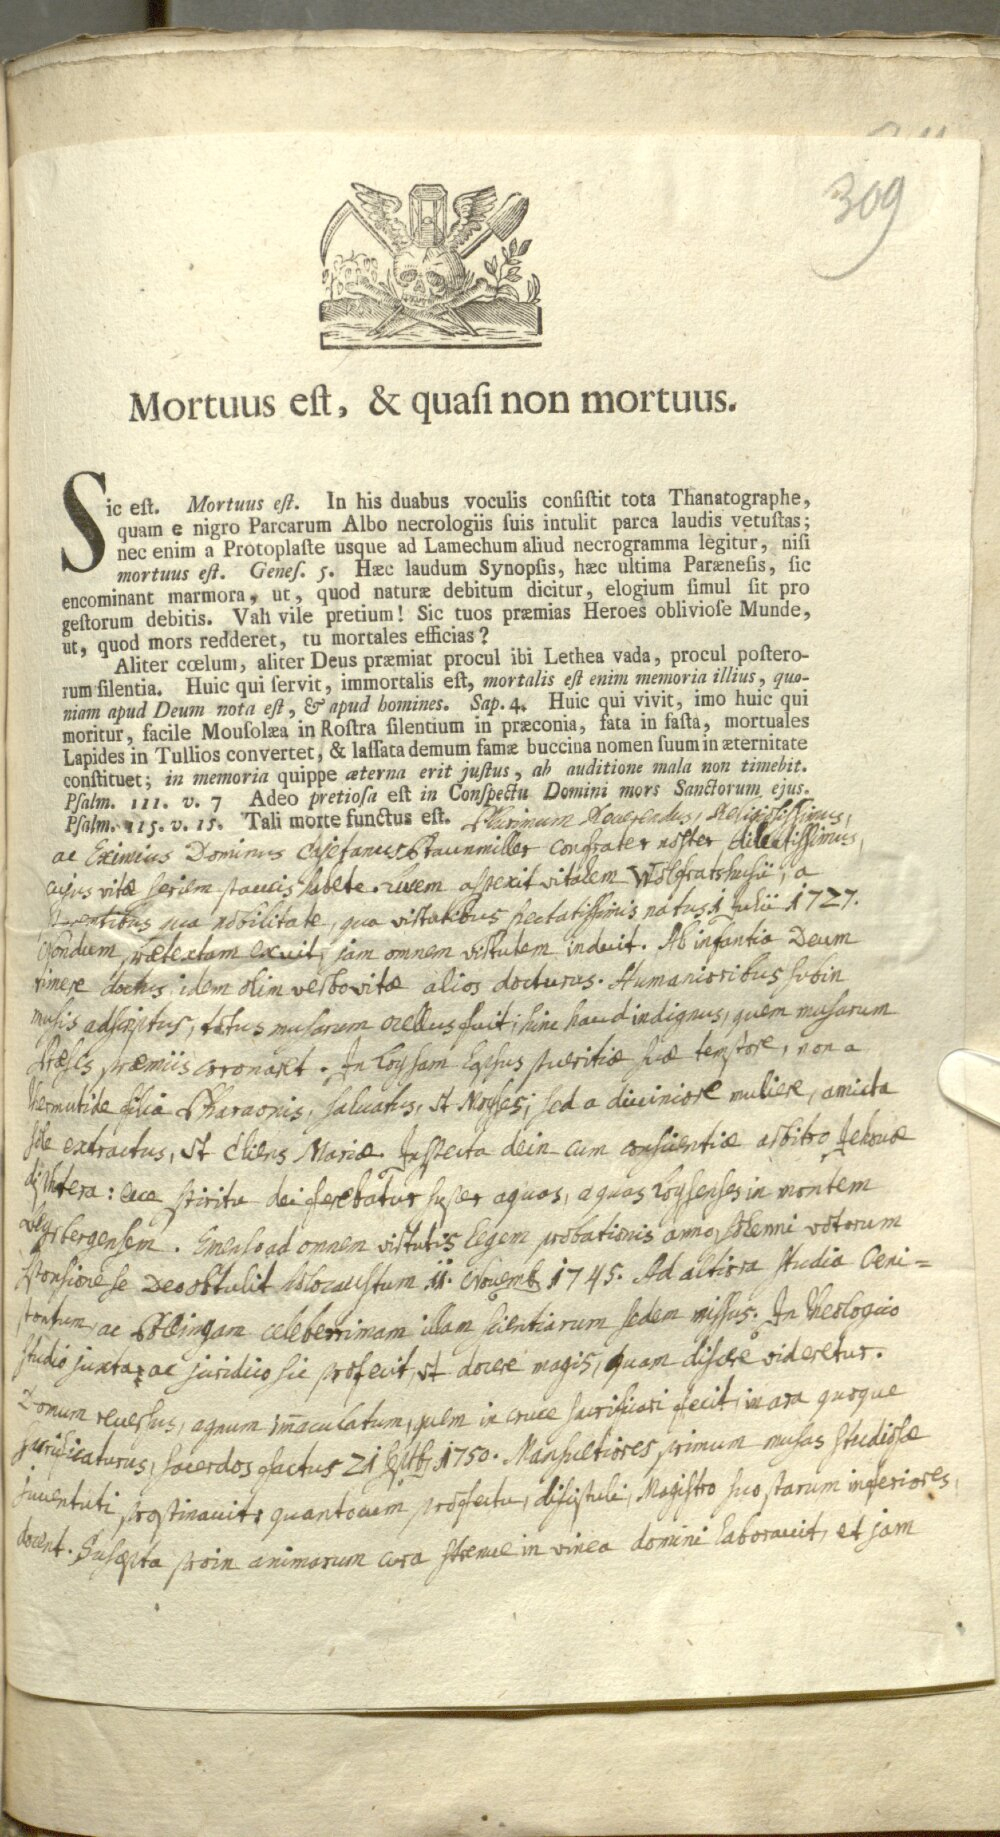 309
Mortuus eſt, & quaſi non mortuus.
Sic eſt. Mortuus eſt. In his duabus voculis conſiſtit tota Thanatographe,
quam e nigro Parcarum Albo necrologiis ſuis intulit parca laudis vetuſtas;
nec enim a Protoplaſte usque ad Lamechum aliud necrogramma legitur, niſi
mortuus eſt. Geneſ. 5. Hæc laudum Synopſis, hæc ultima Parænesis, ſic
encominant marmora, ut, quod naturæ debitum dicitur, elogium ſimul ſit pro
geſtorum debitis. Vah vile pretium! Sic tuos præmias Heroes oblivioſe Munde,
ut, quod mors redderet, tu mortales efficias?
Aliter cœlum, aliter Deus præmiat procul ibi Lethea vada, procul poſtero-
rum ſilentia. Huic qui ſervit, immortalis eſt, mortalis eſt enim memoria illius, quo-
niam apud Deum nota eſt, & apud homines. Sap. 4. Huic qui vivit, imo huic qui
moritur, facile Mouſolæa in Roſtra ſilentium in præconia, fata in faſta, mortuales
Lapides in Tullios convertet, & laſſata demum famæ buccina nomen ſuum in æternitate
conſtituet; in memoria quippe æterna erit juſtus, ab auditione mala non timebit.
Pſalm. 111. v. 7 Adeo pretioſa eſt in Conſpectu Domini mors Sanctorum ejus.
Pſalm. 115. v. 15. Tali morte functus eſt. Plurimum Reverendus, Religiosissimus,
ac Eximius Dominus Cajetanus Praunmiller confrater noster dilectissimus,
cujus vitæ seriem paucis habete. lucem aspexit vitalem Wolfratshusii, a
parentibus qua nobilitate, qua virtutibus spectatissimis natus 1 Julii 1727.
Nondum prætextam exuit, jam omnem virtutem induit. Ab infantia Deum
timere doctus, idem olim verbo vitæ alios docturus. Humanioribus subin
musis adscriptus, totus musarum ocellus fuit, hinc haud indignus, quem musarum
Præses præmiis coronaret. In Loysam lapsus pueritiæ suæ tempore, non a
Thermutide filia Pharaonis, salvatus, ut Moyses, sed a diviniore muliere, amicta
sole extractus, ut Cliens Mariæ. Inspecta dein cum conscientiæ arbitro Jehovæ
diphtera: ecce spiritu dei ferebatur super aquas, aquas Loysenses in montem
Eremso ad omnem virtutis legem probationis anno, solemni votorum
sponsione se Deo obtulit holocaustum 11. Novemb 1745. Ad altiora studia Oeni=
pontum, ac Pollingam celeberrimam illam scientiarum sedem missus. In Theologico
studio juxta ac juridico sic profecit, ut docere magis, quam discere videretur.
Domum reversus, agnum immaculatum, quem in cruce sacrificari fecit, in ara quoque
sacrificaturus, sacerdos factus 21 septb 1750. Mansuetiores primum musas studiosæ
juventuti propinavit: quantocum profectu, discipuli, Magistro suo parum inferiores,
docent. Suscepta proin animarum cura strenue in vinea domini laboravit, et jam